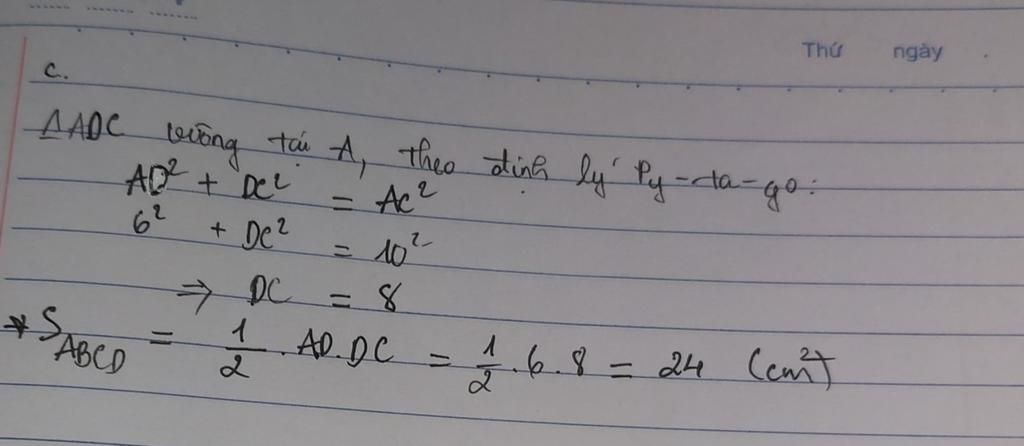 Thứ ngày .
c.
△ADC vuông tại A, theo định lý Py-ta-go:
AD² + DC² = AC²
6² + DC² = 10²
⇒ DC = 8
* S_ABCD = 1/2 . AD.DC = 1/2 . 6 . 8 = 24 (cm²)